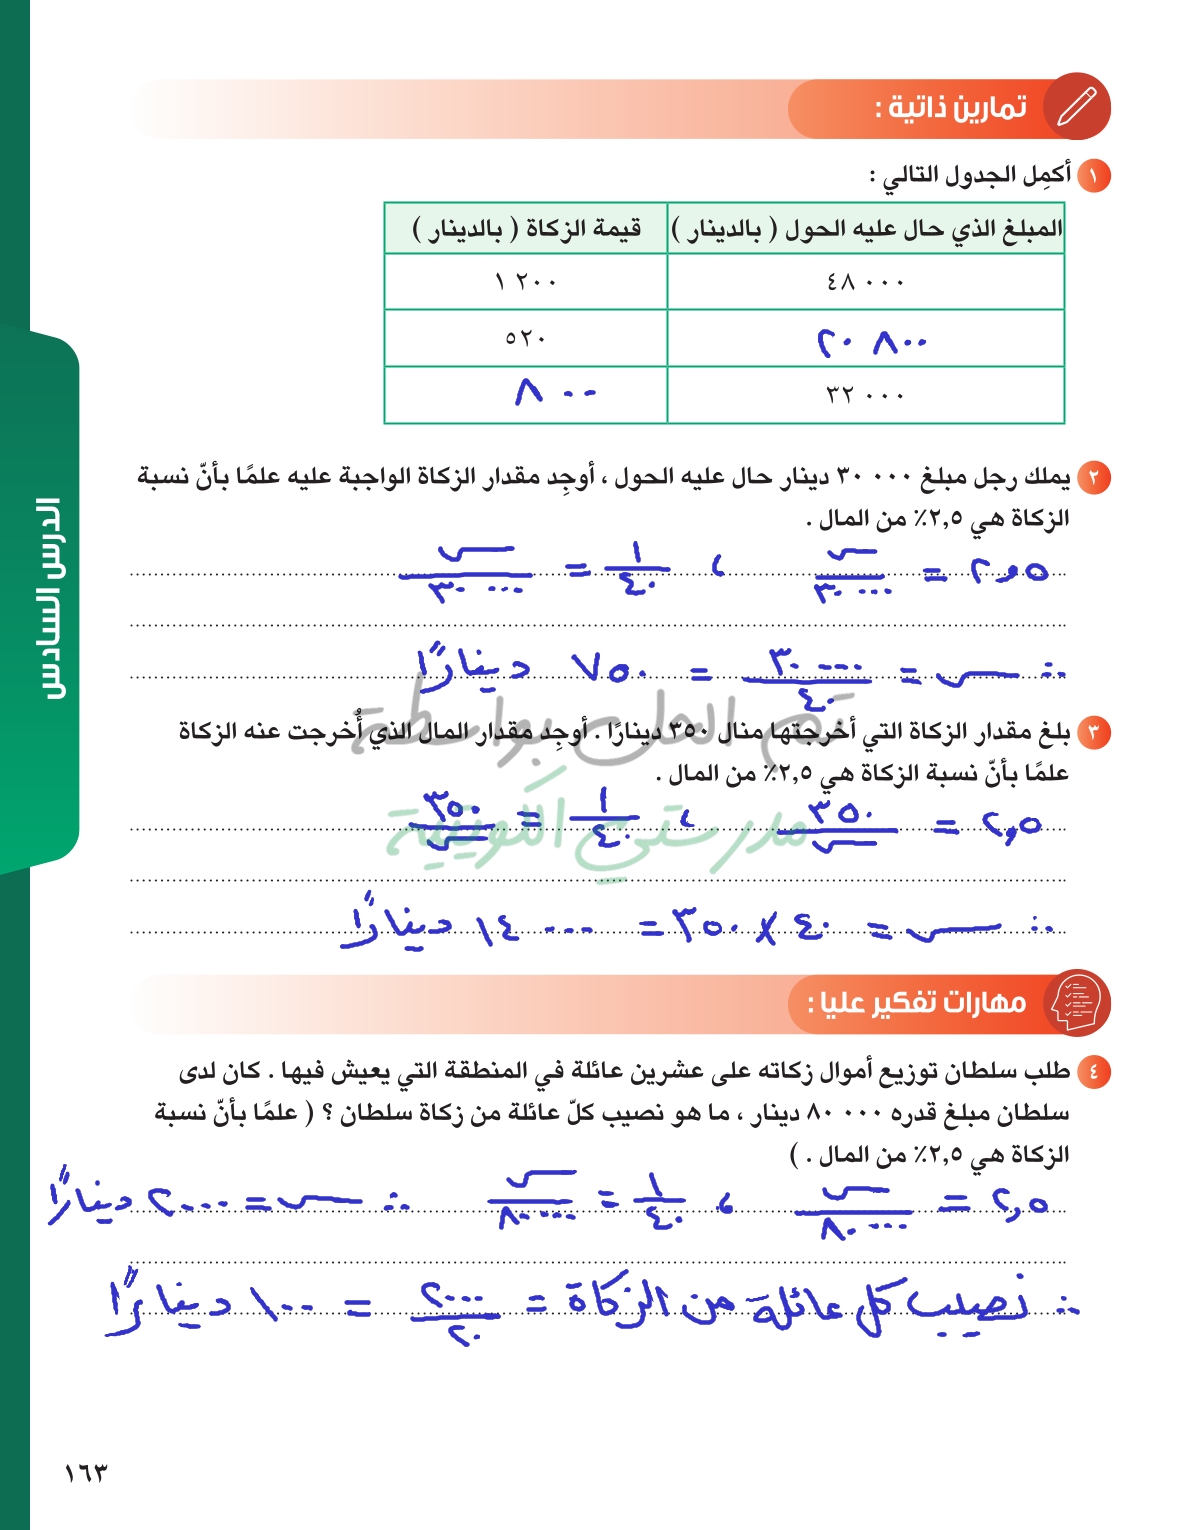 تمارين ذاتية :
١ أكمِل الجدول التالي :
المبلغ الذي حال عليه الحول ( بالدينار ) قيمة الزكاة ( بالدينار )
٤٨ ٠٠٠ ١ ٢٠٠
٢٠ ٨٠٠ ٥٢٠
٣٢ ٠٠٠ ٨٠٠
٢ يملك رجل مبلغ ٣٠ ٠٠٠ دينار حال عليه الحول ، أوجِد مقدار الزكاة الواجبة عليه علمًا بأنّ نسبة
الزكاة هي ٢,٥٪ من المال .
٢,٥ = س/٣٠ ٠٠٠ ، ١/٤٠ = س/٣٠ ٠٠٠
∴ س = ٣٠ ٠٠٠/٤٠ = ٧٥٠ دينارًا
تم الحل بواسطة
٣ بلغ مقدار الزكاة التي أخرجتها منال ٣٥٠ دينارًا . أوجِد مقدار المال الذي أُخرجت عنه الزكاة
علمًا بأنّ نسبة الزكاة هي ٢,٥٪ من المال .
مدرستي الكويتية
٢,٥ = ٣٥٠/س ، ١/٤٠ = ٣٥٠/س
∴ س = ٤٠ × ٣٥٠ = ١٤ ٠٠٠ دينارًا
مهارات تفكير عليا :
٤ طلب سلطان توزيع أموال زكاته على عشرين عائلة في المنطقة التي يعيش فيها . كان لدى
سلطان مبلغ قدره ٨٠ ٠٠٠ دينار ، ما هو نصيب كلّ عائلة من زكاة سلطان ؟ ( علمًا بأنّ نسبة
الزكاة هي ٢,٥٪ من المال . )
٢,٥ = س/٨٠ ٠٠٠ ، ١/٤٠ = س/٨٠ ٠٠٠ ∴ س = ٢٠٠٠ دينارًا
∴ نصيب كل عائلة من الزكاة = ٢٠٠٠/٢٠ = ١٠٠ دينارًا
الدرس السادس
١٦٣